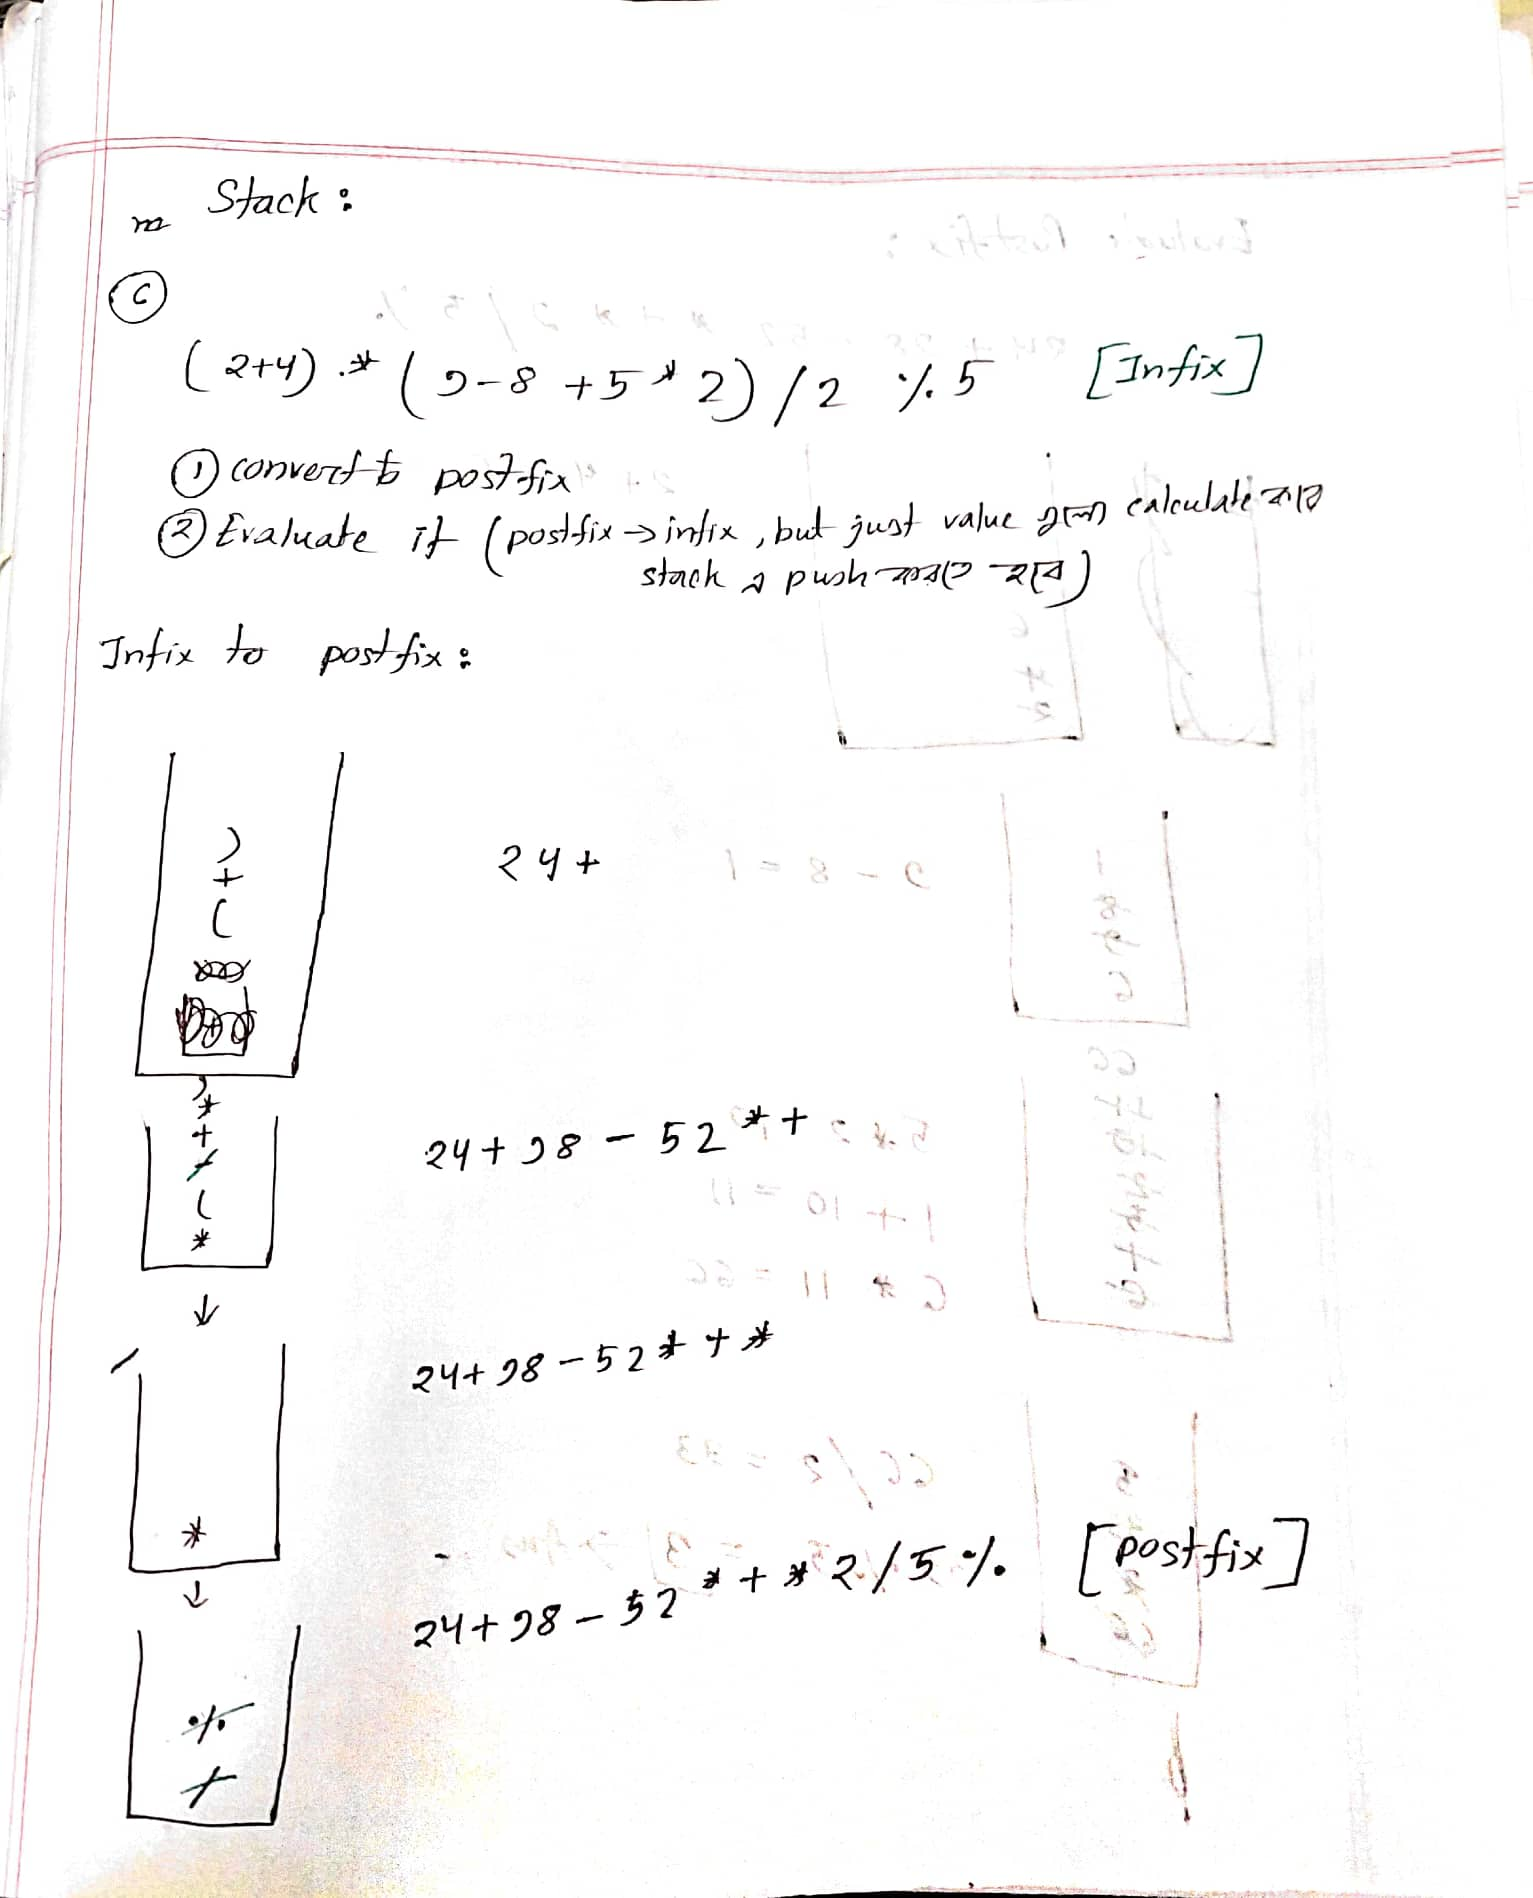 Stack :
C
(2+4) * (9-8 +5 * 2) / 2 % 5 [Infix]
① convert to postfix
② Evaluate it (postfix → infix, but just value গুলো calculate করে
stack এ push করতে হবে)
Infix to postfix :
)
+
(
24+
)
*
+
(
*
24+98-52*+
↓
24+98-52*+*
*
↓
24+98-52*+*2/5% [postfix]
%